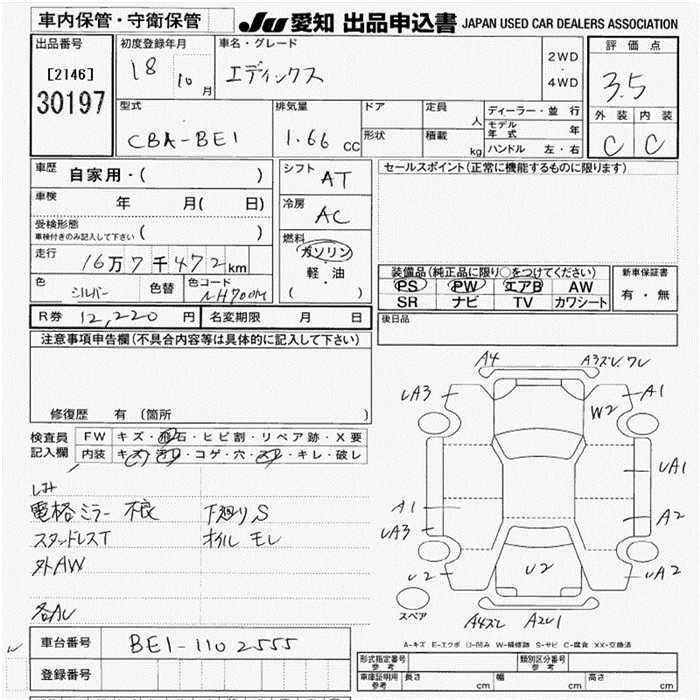 車内保管・守衛保管
JU 愛知 出品申込書 JAPAN USED CAR DEALERS ASSOCIATION
出品番号
[2146]
30197
初度登録年月
18 10 月
車名・グレード
エディックス
2WD
・
4WD
評価点
3.5
外装 内装
C C
型式
CBA-BE1
排気量
1.66 CC
ドア
形状
定員
人
積載
kg
ディーラー・並行
モデル年式 年
ハンドル 左・右
車歴
自家用・( )
車検
年 月( 日)
受検形態
車検付きのみ記入して下さい
( )
走行
16万7千472km
色
シルバー
色替
色コード
NH700M
シフト
AT
冷房
AC
燃料
ガソリン
・
軽・油
( )
セールスポイント(正常に機能するものに限ります)
装備品(純正品に限り○をつけてください)
PS PW エアB AW
SR ナビ TV カワシート
新車保証書
有・無
R券 12,220 円
名変期限 月 日
後日品
注意事項申告欄(不具合内容等は具体的に記入して下さい)
修復歴 有(箇所 )
検査員
記入欄
FW キズ・飛石・ヒビ割・リペア跡・X要
内装 キズ・汚レ・コゲ・穴・スレ・キレ・破レ
しみ
電格ミラー不良 下廻りS
スタッドレスT オイルモレ
外AW
各AL
A4 A3ズレ.ワレ
UA3 A1
W2
UA1
A1 A2
UA3
U2 U2 UA2
スペア
A4ズレ A2U1
A-キズ E-エクボ U-凹み W-補修跡 S-サビ C-腐食 XX-交換済
車台番号 BE1-1102555
登録番号
形式指定番号
参考
類別区分番号
参考
車庫証明用
参考
長さ cm 幅 cm 高さ cm